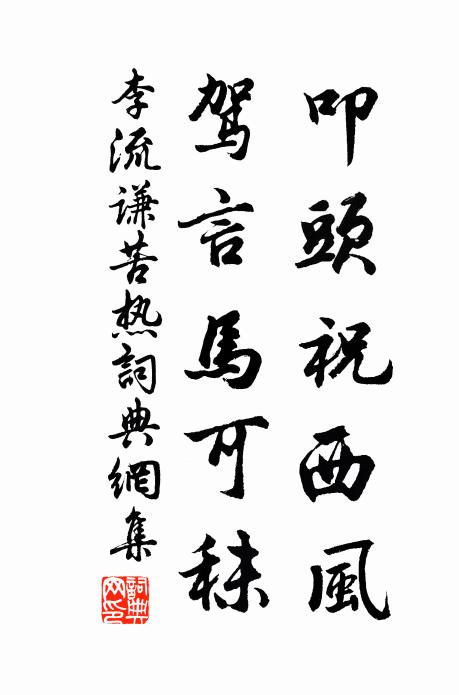 叩頭祝西風
駕言馬可秣
李流謙苦热詞典網集
詞典